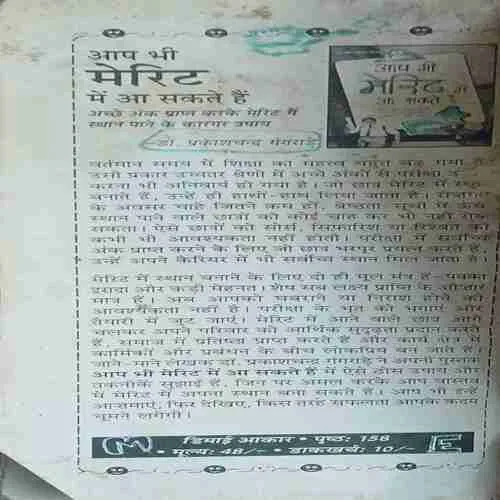 आप भी
मेरिट
में आ सकते हैं
अच्छे अंक प्राप्त करके मेरिट में
स्थान पाने के कारगर उपाय
डॉ. प्रकाशचन्द्र गंगराड़े
आप भी
मेरिट में
आ सकते
वर्तमान समय में शिक्षा का महत्त्व बहुत बढ़ गया
उसी प्रकार उच्चतर श्रेणी में अच्छे अंकों से परीक्षा
करना भी अनिवार्य हो गया है। जो छात्र मेरिट में स्थान
बनाते हैं, उन्हें ही हाथों-हाथ लिया जाता है। रोजगार
के अवसर चाहे जितने कम हों, प्रथम सूची में
स्थान पाने वाले छात्रों को कोई चाह कर भी नहीं रोक
सकता। ऐसे छात्रों को सोर्स, सिफारिश या रिश्वत की
कभी भी आवश्यकता नहीं होती। परीक्षा में सर्वाधिक
अंक प्राप्त करने के लिए जो छात्र भरपूर प्रयत्न करते हैं,
उन्हें अपने कैरियर में भी सर्वोच्च स्थान मिल जाता है।
मेरिट में स्थान बनाने के लिए दो ही मूल मंत्र हैं - पक्का
इरादा और कड़ी मेहनत। शेष सब लक्ष्य प्राप्ति के सोपान
मात्र हैं। अब आपको घबराने या निराश होने की
आवश्यकता नहीं है। परीक्षा के भूत को भगाएं और
तैयारी में जुट जाएं। मेरिट में आने वाले छात्र आगे
चलकर अपने परिवार को आर्थिक सुदृढ़ता प्रदान करते
हैं, समाज में प्रतिष्ठा प्राप्त करते हैं और कार्य क्षेत्र में
कार्मिकों और प्रबंधन के बीच लोकप्रिय बन जाते हैं।
जाने-माने लेखक डॉ. प्रकाशचन्द्र गंगराड़े ने अपनी पुस्तक
आप भी मेरिट में आ सकते हैं में ऐसे ठोस उपाय और
तकनीकें सुझाई हैं, जिन पर अमल करके आप वास्तव
में मेरिट में अपना स्थान बना सकते हैं। आप भी इन्हें
आजमाएं, फिर देखिए, किस तरह सफलता आपके कदम
चूमने लगेगी।
डिमाई आकार • पृष्ठ: 158
• मूल्य: 48/- • डाकखर्च: 10/-